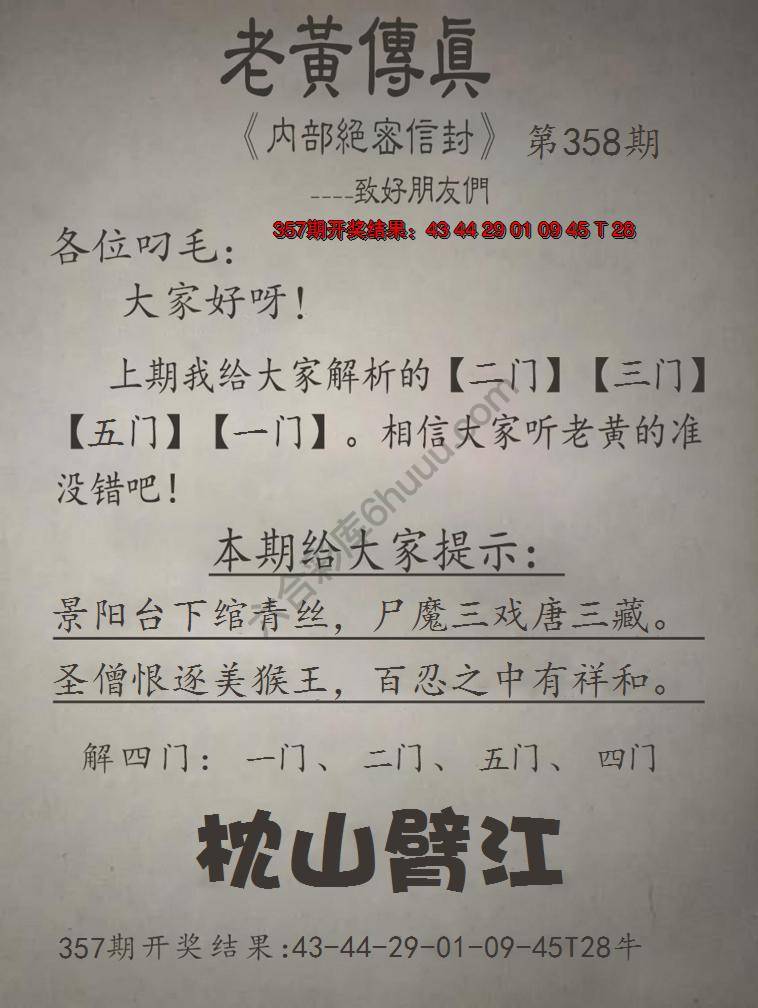 老黃傳眞
《内部絕密信封》 第358期
----致好朋友們
357期开奖结果：43 44 29 01 09 45 T 28
各位叼毛：
大家好呀！
上期我给大家解析的【二门】【三门】
【五门】【一门】。相信大家听老黄的准
没错吧！
本期给大家提示：
景阳台下绾青丝，尸魔三戏唐三藏。
圣僧恨逐美猴王，百忍之中有祥和。
解四门：一门、二门、五门、四门
枕山臂江
357期开奖结果:43-44-29-01-09-45T28牛
六合彩库6huuu.com